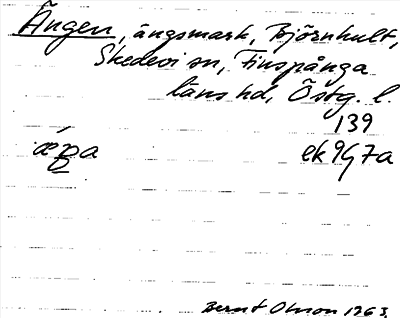 Ängen, ängsmark, Björnhult,
Skedevi sn, Finspånga
läns hd, Östg. l.
139
ek 9G7a
Bernt Olsson 1963.